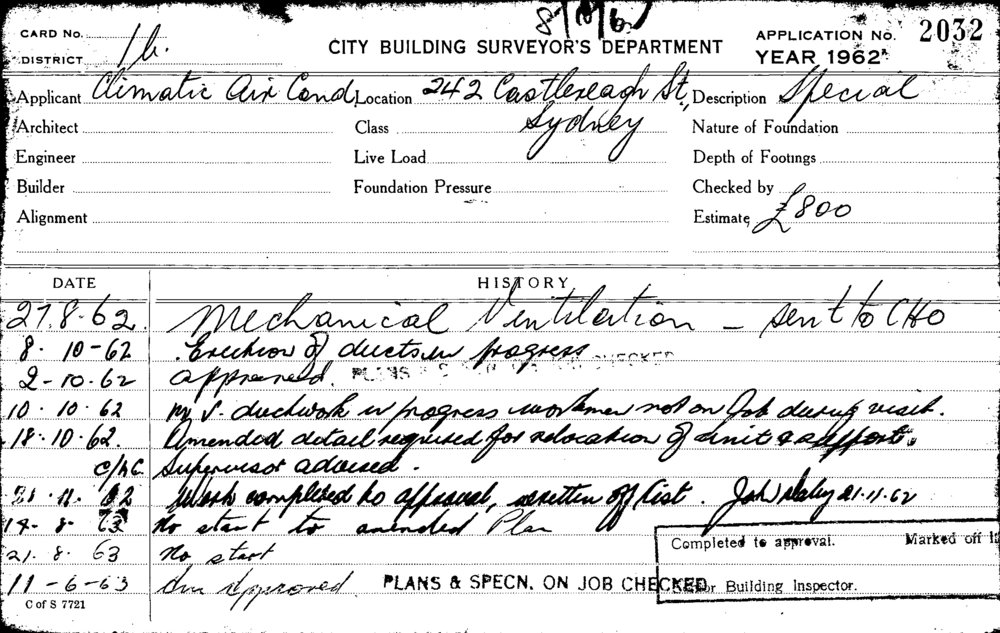 8/10/62
CARD No.
DISTRICT 1b.
CITY BUILDING SURVEYOR'S DEPARTMENT
APPLICATION No. 2032
YEAR 1962
Applicant Climatic Air Cond. Location 242 Castlereagh St., Sydney Description Special
Architect Class Nature of Foundation
Engineer Live Load Depth of Footings
Builder Foundation Pressure Checked by
Alignment Estimate £800
DATE HISTORY
27.8.62. Mechanical Ventilation — sent to CHO
8. 10-62 Erection of ducts in progress
2-10.62 approved. PLANS & CHECKED
10. 10. 62 M.V. ductwork in progress workmen not on Job during visit.
18.10.62. Amended detail required for relocation of unit & support.
Supervisor advised.
21.11.62 Work completed to approval, written off list. 21-11-62
14-8-63 No start to amended Plan
21. 8. 63 No start
11-6-63 Approved PLANS & SPECN. ON JOB CHECKED
Completed to approval. Marked off
Building Inspector.
C of S 7721